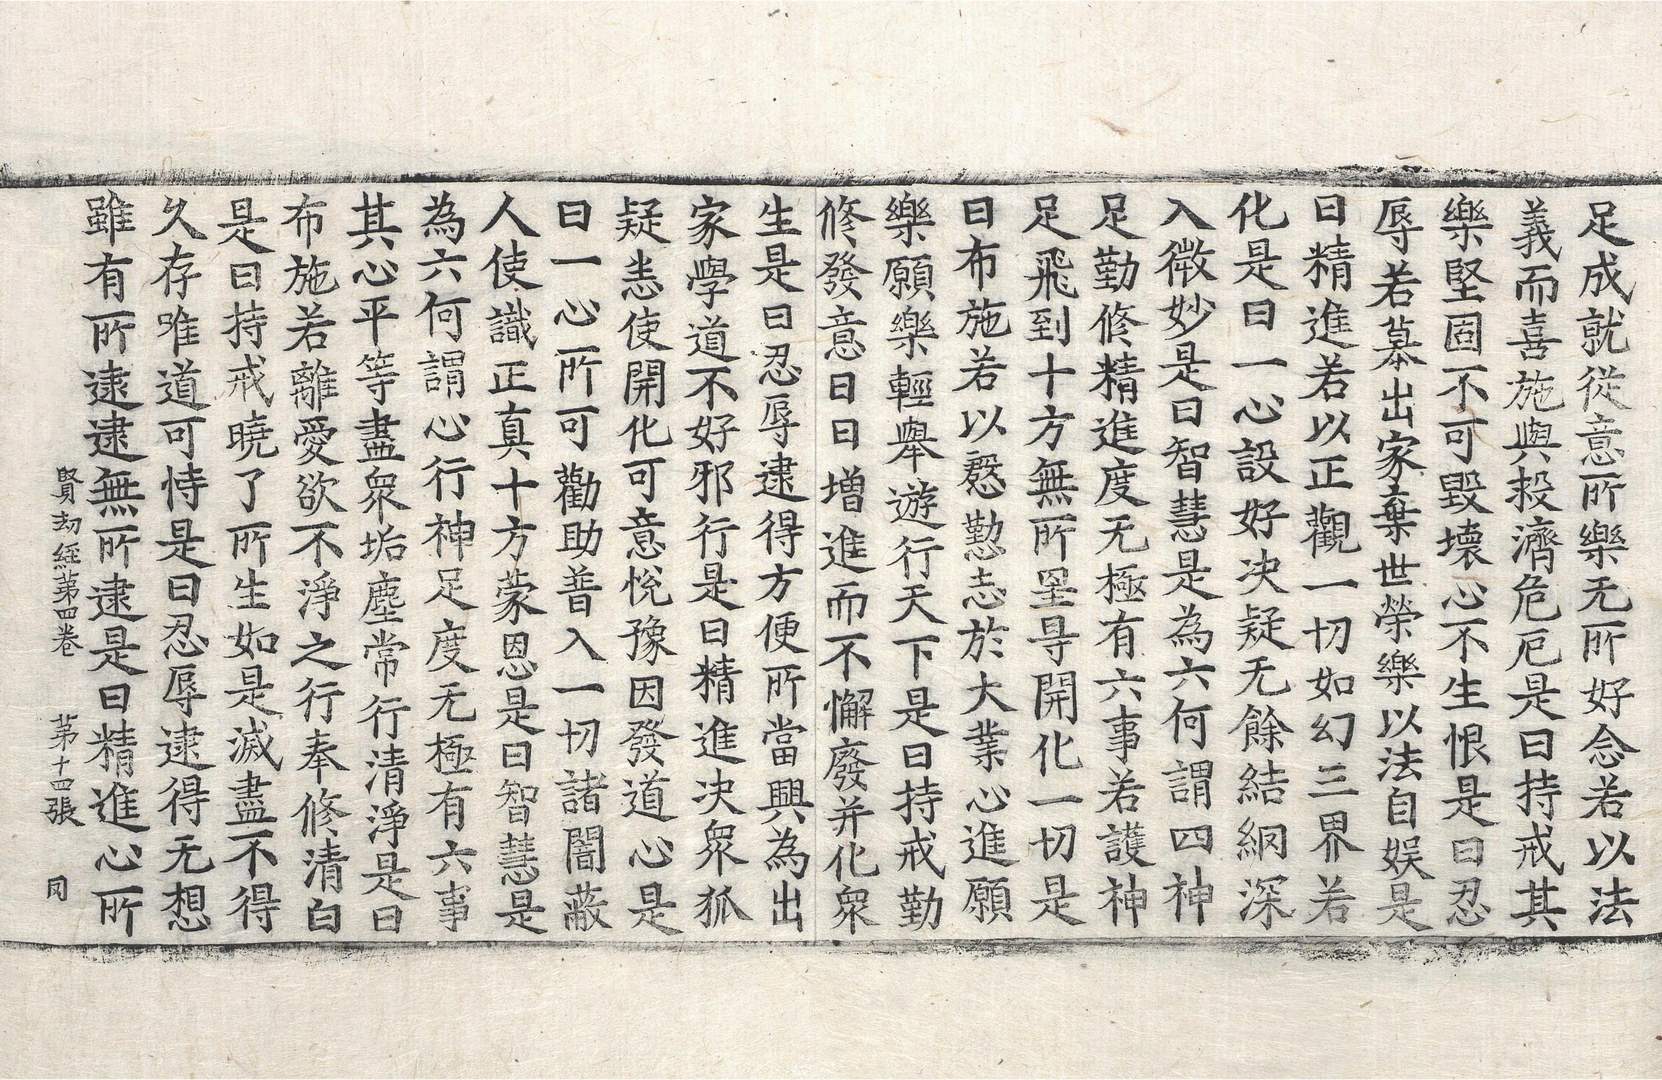 足成就從意所樂无所好念若以法
義而喜施與救濟危厄是曰持戒其
樂堅固不可毀壞心不生恨是曰忍
辱若慕出家棄世榮樂以法自娛是
曰精進若以正觀一切如幻三界若
化是曰一心設好决疑无餘結網深
入微妙是曰智慧是為六何謂四神
足勤修精進度无極有六事若護神
足飛到十方無所罣㝵開化一切是
曰布施若以慇懃志於大業心進願
樂願樂輕舉遊行天下是曰持戒勤
修發意日日增進而不懈廢并化眾
生是曰忍辱逮得方便所當興為出
家學道不好邪行是曰精進决眾狐
疑恚使開化可意悅豫因發道心是
曰一心所可勸助普入一切諸闇蔽
人使識正真十方蒙恩是曰智慧是
為六何謂心行神足度无極有六事
其心平等盡眾垢塵常行清淨是曰
布施若離愛欲不淨之行奉修清白
是曰持戒曉了所生如是滅盡不得
久存唯道可恃是曰忍辱逮得无想
雖有所逮逮無所逮是曰精進心所
賢劫經第四卷 第十四張 同